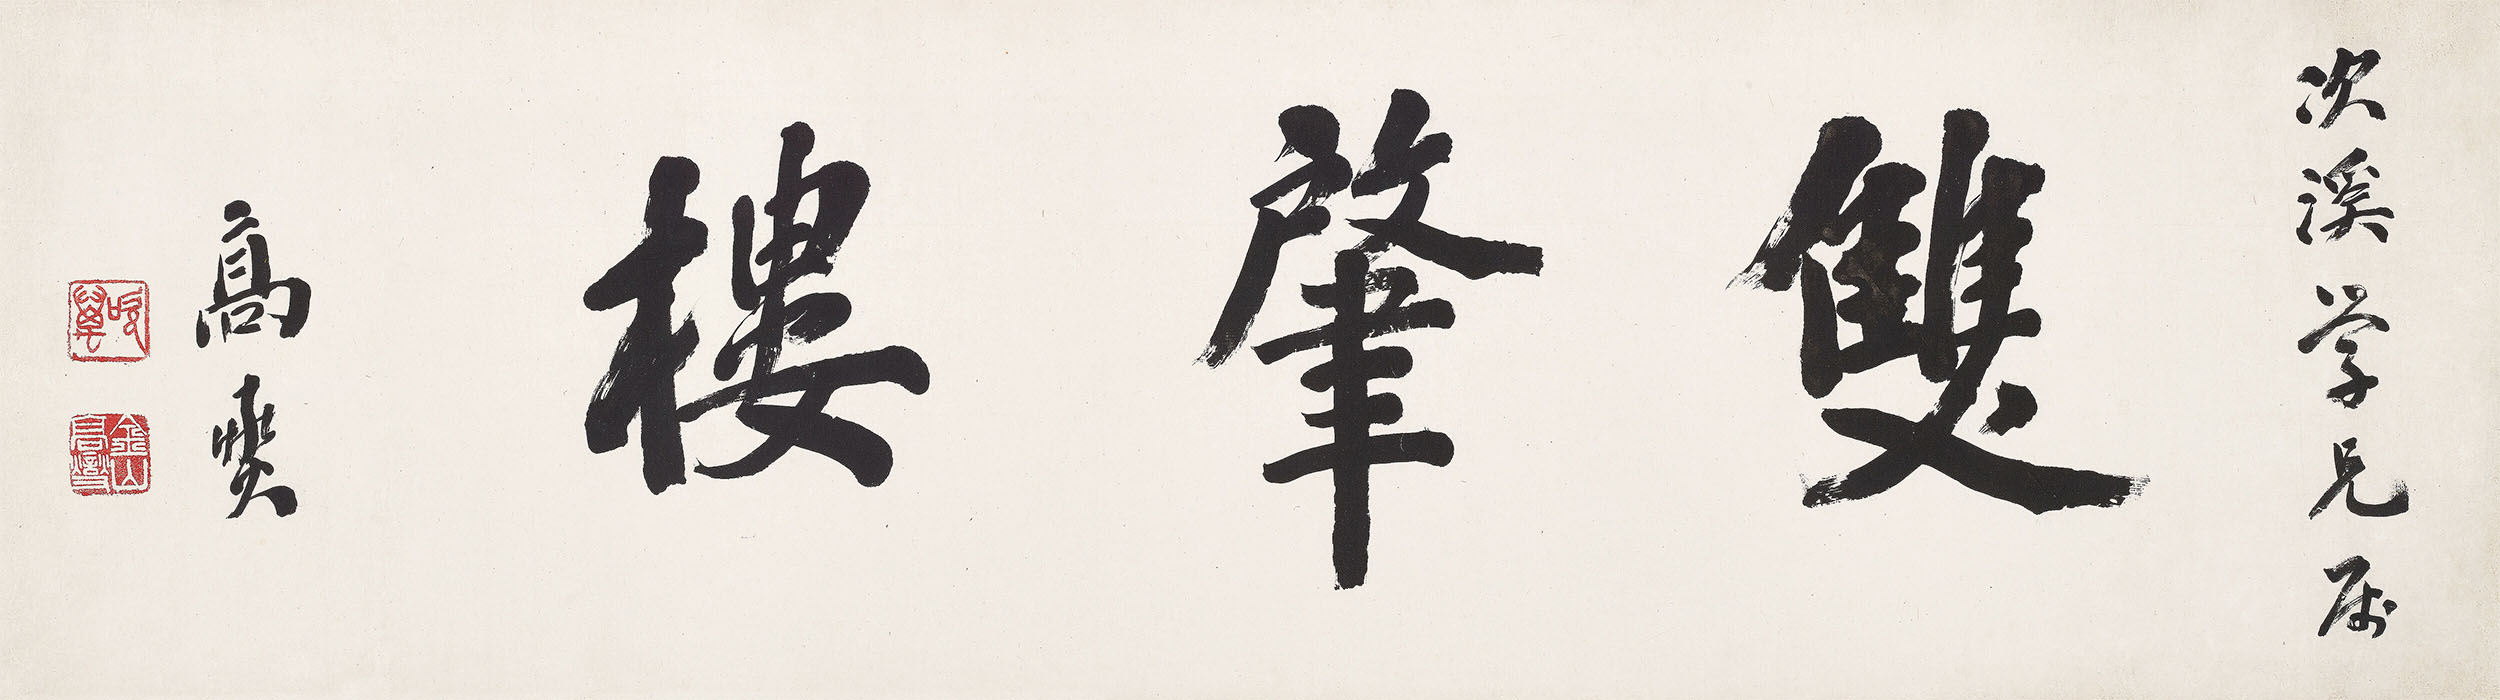 次溪学兄属
雙肇樓
高燮
吹萬
金山高燮